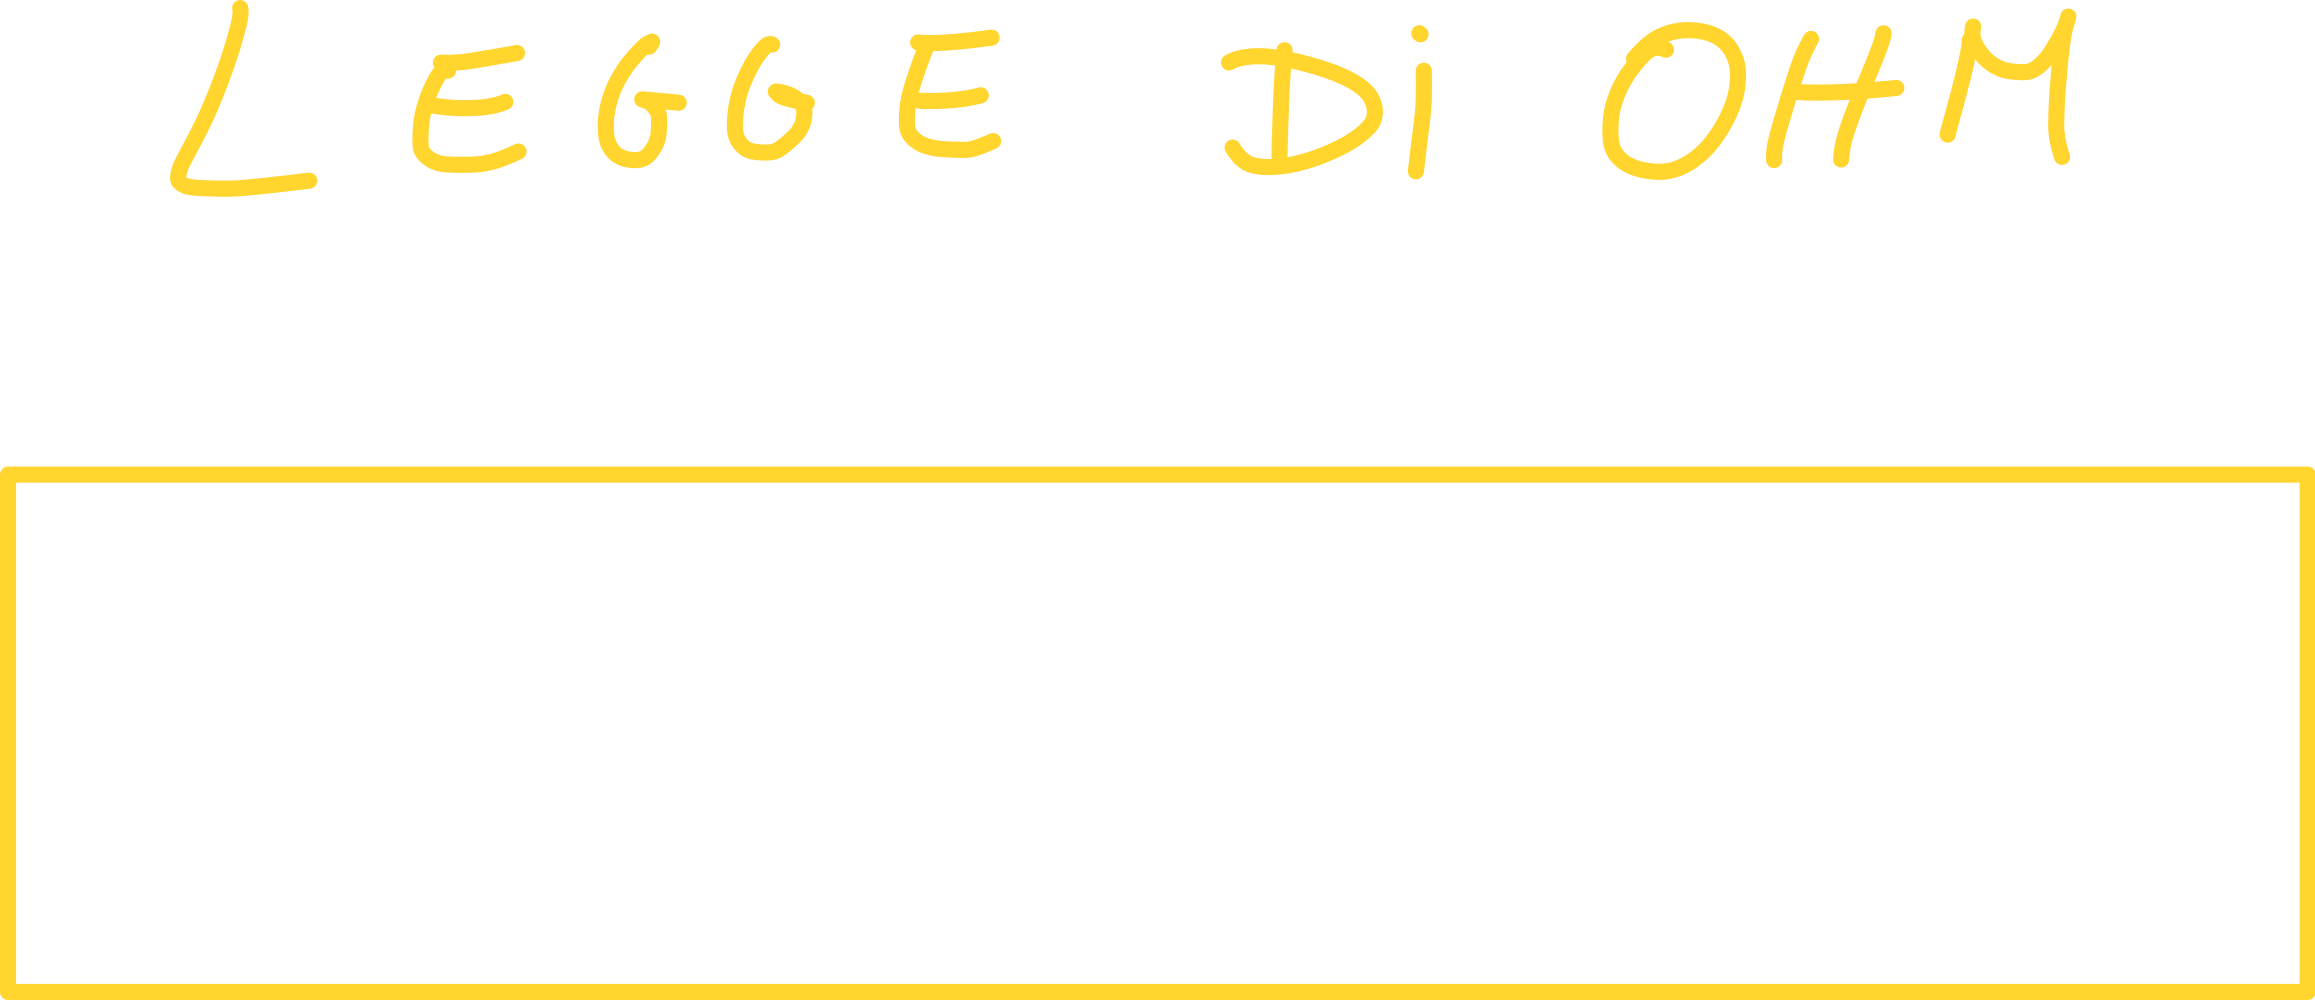 LEGGE Di OHM